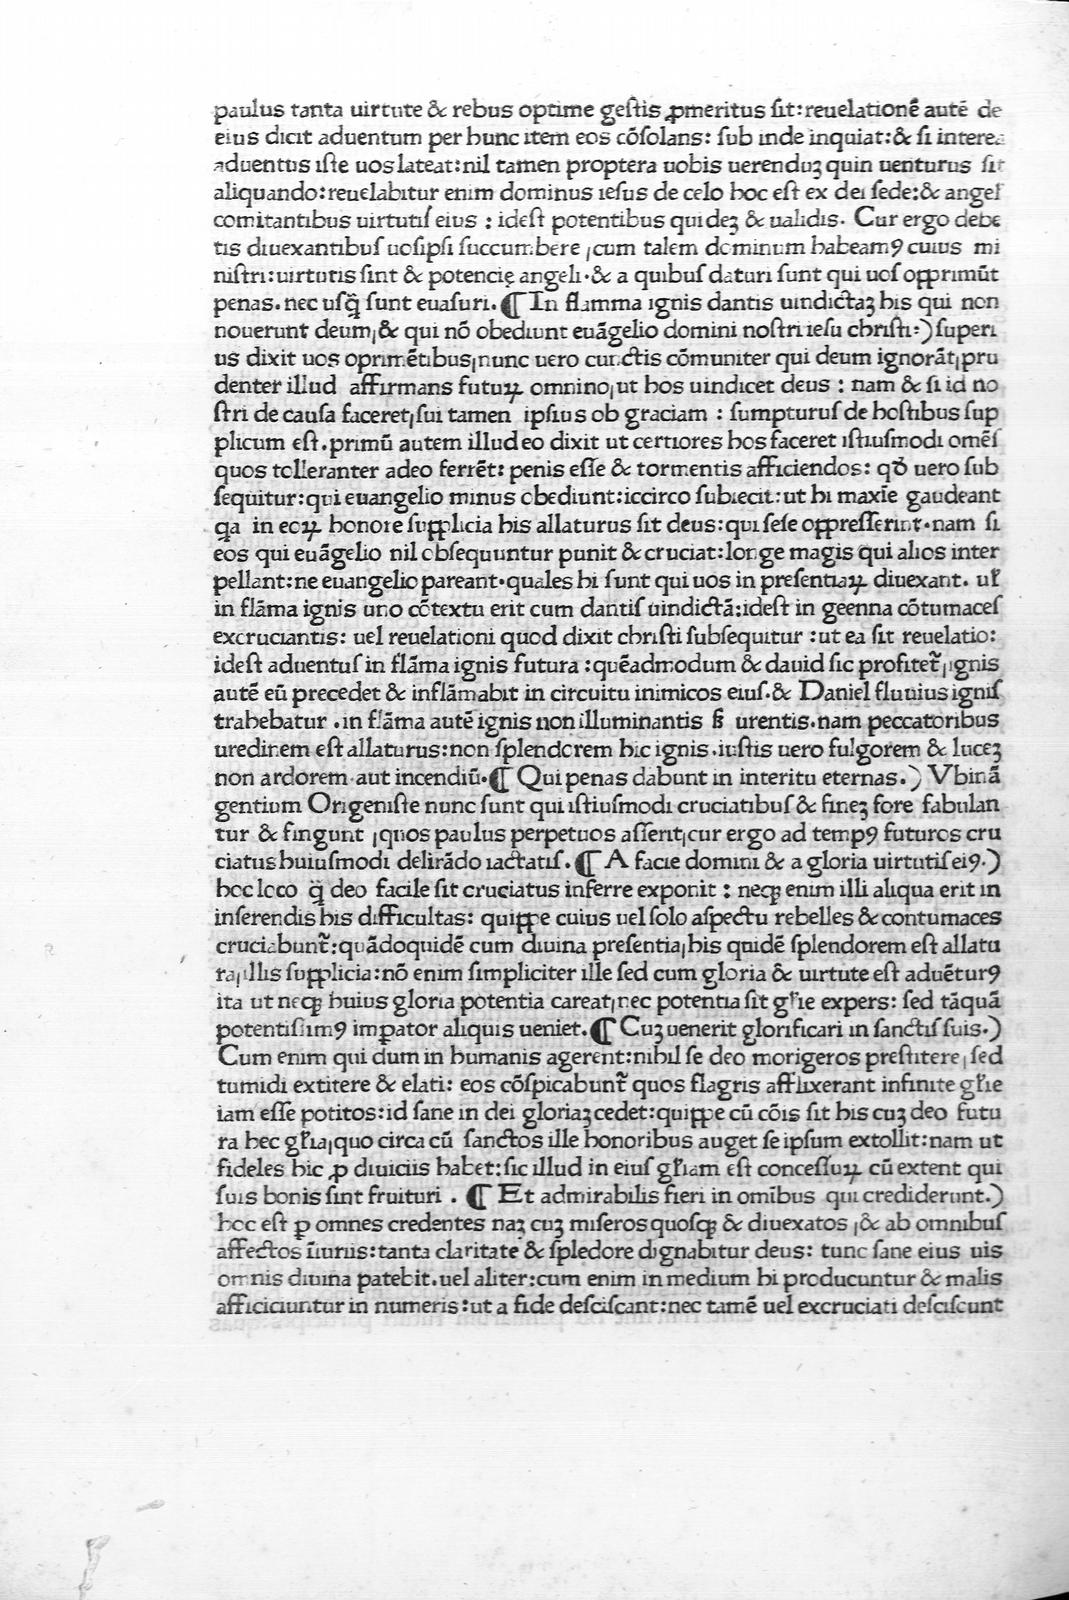 paulus tanta uirtute & rebus optime geſtis ꝓmeritus ſit:reuelationē autē de
eius dicit aduentum per hunc item eos cōſolans: ſub inde inquiat:& ſi interea
aduentus iſte uos lateat:nil tamen proptera uobis uerenduꝫ quin uenturus ſit
aliquando:reuelabitur enim dominus ieſus de celo hoc eſt ex dei ſede:& angeſ
comitantibus uirtutiſ eius : ideſt potentibus quideꝫ & ualidis. Cur ergo debe
tis diuexantibuſ uoſipſi ſuccumbere ,cum talem dominum habeamꝰ cuius mi
niſtri:uirtutis ſint & potencię angeli.& a quibuſ daturi ſunt qui uoſ oꝑprimūt
penas.nec uſꝙ̄ ſunt euaſuri.¶ In flamma ignis dantis uindictaꝫ his qui non
nouerunt deum,& qui nō obediunt euāgelio domini noſtri ieſu chriſti:)ſuperi
us dixit uos oprimētibus,nunc uero cunctis cōmuniter qui deum ignorāt,pru
denter illud affirmans futuꝝ omnino,ut hos uindicet deus : nam & ſi id no
ſtri de cauſa faceret,ſui tamen ipſius ob graciam : ſumpturuſ de hoſtibus ſup
plicum eſt.primū autem illud eo dixit ut certiores hos faceret iſtiuſmodi omēſ
quos tolleranter adeo ferrēt: penis eſſe & tormentis afficiendos: qđ uero ſub
ſequitur:qui euangelio minus obediunt:iccirco ſubiecit:ut hi maxīe gaudeant
qa in eoꝝ honore ſupplicia his allaturus ſit deus:qui ſeſe oppreſſerint.nam ſi
eos qui euāgelio nil obſequuntur punit & cruciat:longe magis qui alios inter
pellant:ne euangelio pareant.quales hi ſunt qui uos in preſentiaꝝ diuexant. uł
in flāma ignis uno cōtextu erit cum dantiſ uindictā:ideſt in geenna cōtumaceſ
excruciantis: uel reuelationi quod dixit chriſti ſubſequitur :ut ea ſit reuelatio:
ideſt aduentuſ in flāma ignis futura :quēadmodum & dauid ſic profitet᷑,ignis
autē eū precedet & inflāmabit in circuitu inimicos eiuſ.& Daniel fluuius igniſ
trahebatur .in flāma autē ignis non illuminantis ſꝫ urentis.nam peccatoribus
uredinem eſt allaturus:non ſplendorem hic ignis.iuſtis uero fulgorem & luceꝫ
non ardorem aut incendiū.¶ Qui penas dabunt in interitu eternas.) Vbinā
gentium Origeniſte nunc ſunt qui iſtiuſmodi cruciatibuſ & fineꝫ fore fabulan
tur & fingunt ,quos paulus perpetuos aſſerit,cur ergo ad tempꝰ futuros cru
ciatus huiuſmodi delirādo iactatiſ.¶ A facie domini & a gloria uirtutiſ eiꝰ.)
hoc loco ꝙ̄ deo facile ſit cruciatus inferre exponit : neqꝫ enim illi aliqua erit in
inferendis his difficultas: quippe cuius uel ſolo aſpectu rebelles & contumaces
cruciabunt᷑:quādoquidē cum diuina preſentia,his quidē ſplendorem eſt allatu
ra,illis ſupplicia:nō enim ſimpliciter ille ſed cum gloria & uirtute eſt aduēturꝰ
ita ut neqꝫ huius gloria potentia careat,nec potentia ſit gl̃ie expers: ſed tāquā
potentiſſimꝰ imꝑator aliquis ueniet.¶ Cuꝫ uenerit glorificari in ſanctiſ ſuis.)
Cum enim qui dum in humanis agerent:nihil ſe deo morigeros preſtitere,ſed
tumidi extitere & elati: eos cōſpicabunt᷑ quos flagris afflixerant infinite gl̃ie
iam eſſe potitos:id ſane in dei gloriaꝫ cedet:quippe cū cōis ſit his cuꝫ deo futu
ra hec gl̃ia,quo circa cū ſanctos ille honoribus auget ſe ipſum extollit:nam ut
fideles hic ꝓ diuiciis habet:ſic illud in eiuſ gl̃iam eſt conceſſuꝝ cū extent qui
ſuis bonis ſint fruituri . ¶ Et admirabilis fieri in omībus qui crediderunt.)
hoc eſt ꝑ omnes credentes naꝫ cuꝫ miſeros quoſqꝫ & diuexatos ,& ab omnibuſ
affectos īiurus:tanta claritate & ſplēdore dignabitur deus: tunc ſane eius uis
omnis diuina patebit.uel aliter:cum enim in medium hi producuntur & malis
afficiciuntur in numeris:ut a fide deſciſcant:nec tamē uel excruciati deſciſcunt